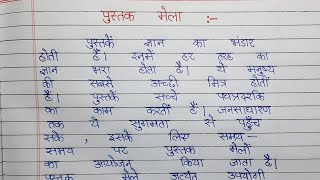 पुस्तक मेला :-
पुस्तकें ज्ञान का भंडार
होती हैं। इनमें हर तरह का
ज्ञान भरा होता है। ये मनुष्य
की सबसे अच्छी मित्र होती
हैं। पुस्तकें सच्चे पथप्रदर्शक
का काम करती हैं। जनसाधारण
तक ये सुगमता से पहुँच
सके, इसके लिए समय-
समय पर पुस्तक मेलों
का आयोजन किया जाता है।
पुस्तक मेले अत्यंत उपयोगी